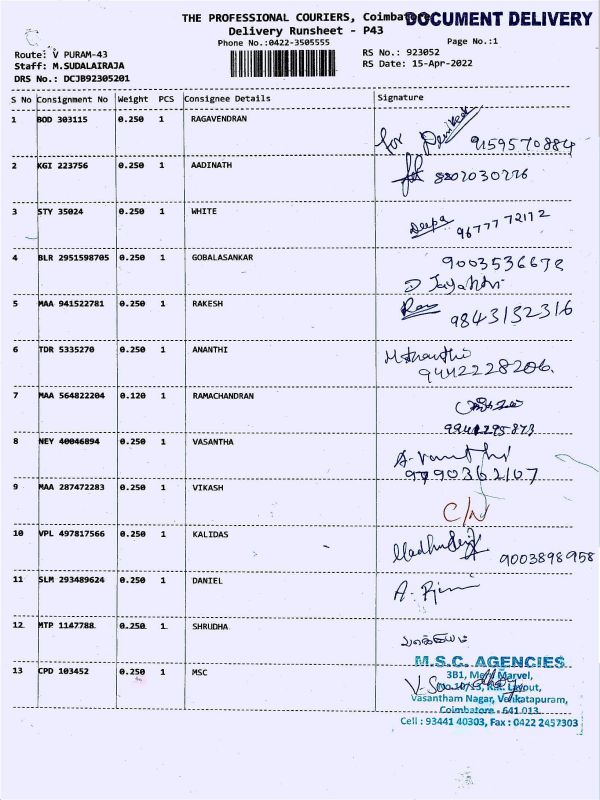 THE PROFESSIONAL COURIERS, Coimbatore DOCUMENT DELIVERY
Delivery Runsheet - P43
Phone No.:0422-3505555
Page No.:1
Route: V PURAM-43
RS No.: 923052
Staff: M.SUDALAIRAJA
RS Date: 15-Apr-2022
DRS No.: DCJB92305201
S No Consignment No Weight PCS Consignee Details Signature
1 BOD 303115 0.250 1 RAGAVENDRAN
for
9159570884
2 KGI 223756 0.250 1 AADINATH
8202030226
3 STY 35024 0.250 1 WHITE
Deepa 9677772172
4 BLR 2951598705 0.250 1 GOBALASANKAR
9003536672
D Jayanthi
5 MAA 941522781 0.250 1 RAKESH
9843132316
6 TDR 5335270 0.250 1 ANANTHI
M Ananthi
9442228206.
7 MAA 564822204 0.120 1 RAMACHANDRAN
8 NEY 40046894 0.250 1 VASANTHA
9790362107
9 MAA 287472283 0.250 1 VIKASH
C/N
10 VPL 497817566 0.250 1 KALIDAS
9003898958
11 SLM 293489624 0.250 1 DANIEL
12 MTP 1147788 0.250 1 SHRUDHA
13 CPD 103452 0.250 1 MSC
M.S.C. AGENCIES
3B1, Marvel,
Layout,
Vasantham Nagar, Venkatapuram,
Coimbatore - 641 013.
Cell : 93441 40303, Fax : 0422 2457303